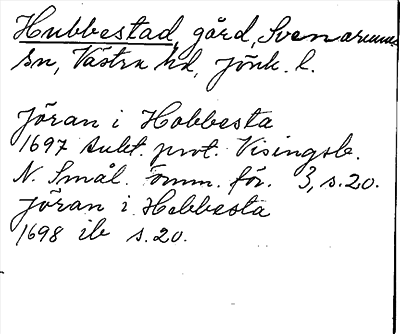 Hubbestad, gård, Svenarums
sn, Västra hd, Jönk. l.
Jöran i Hobbesta
1697 Aukt. prot. Visingsb.
N. Smål. fornm. för. 3, s. 20.
Jöran i Hebbesta
1698 ib s. 20.